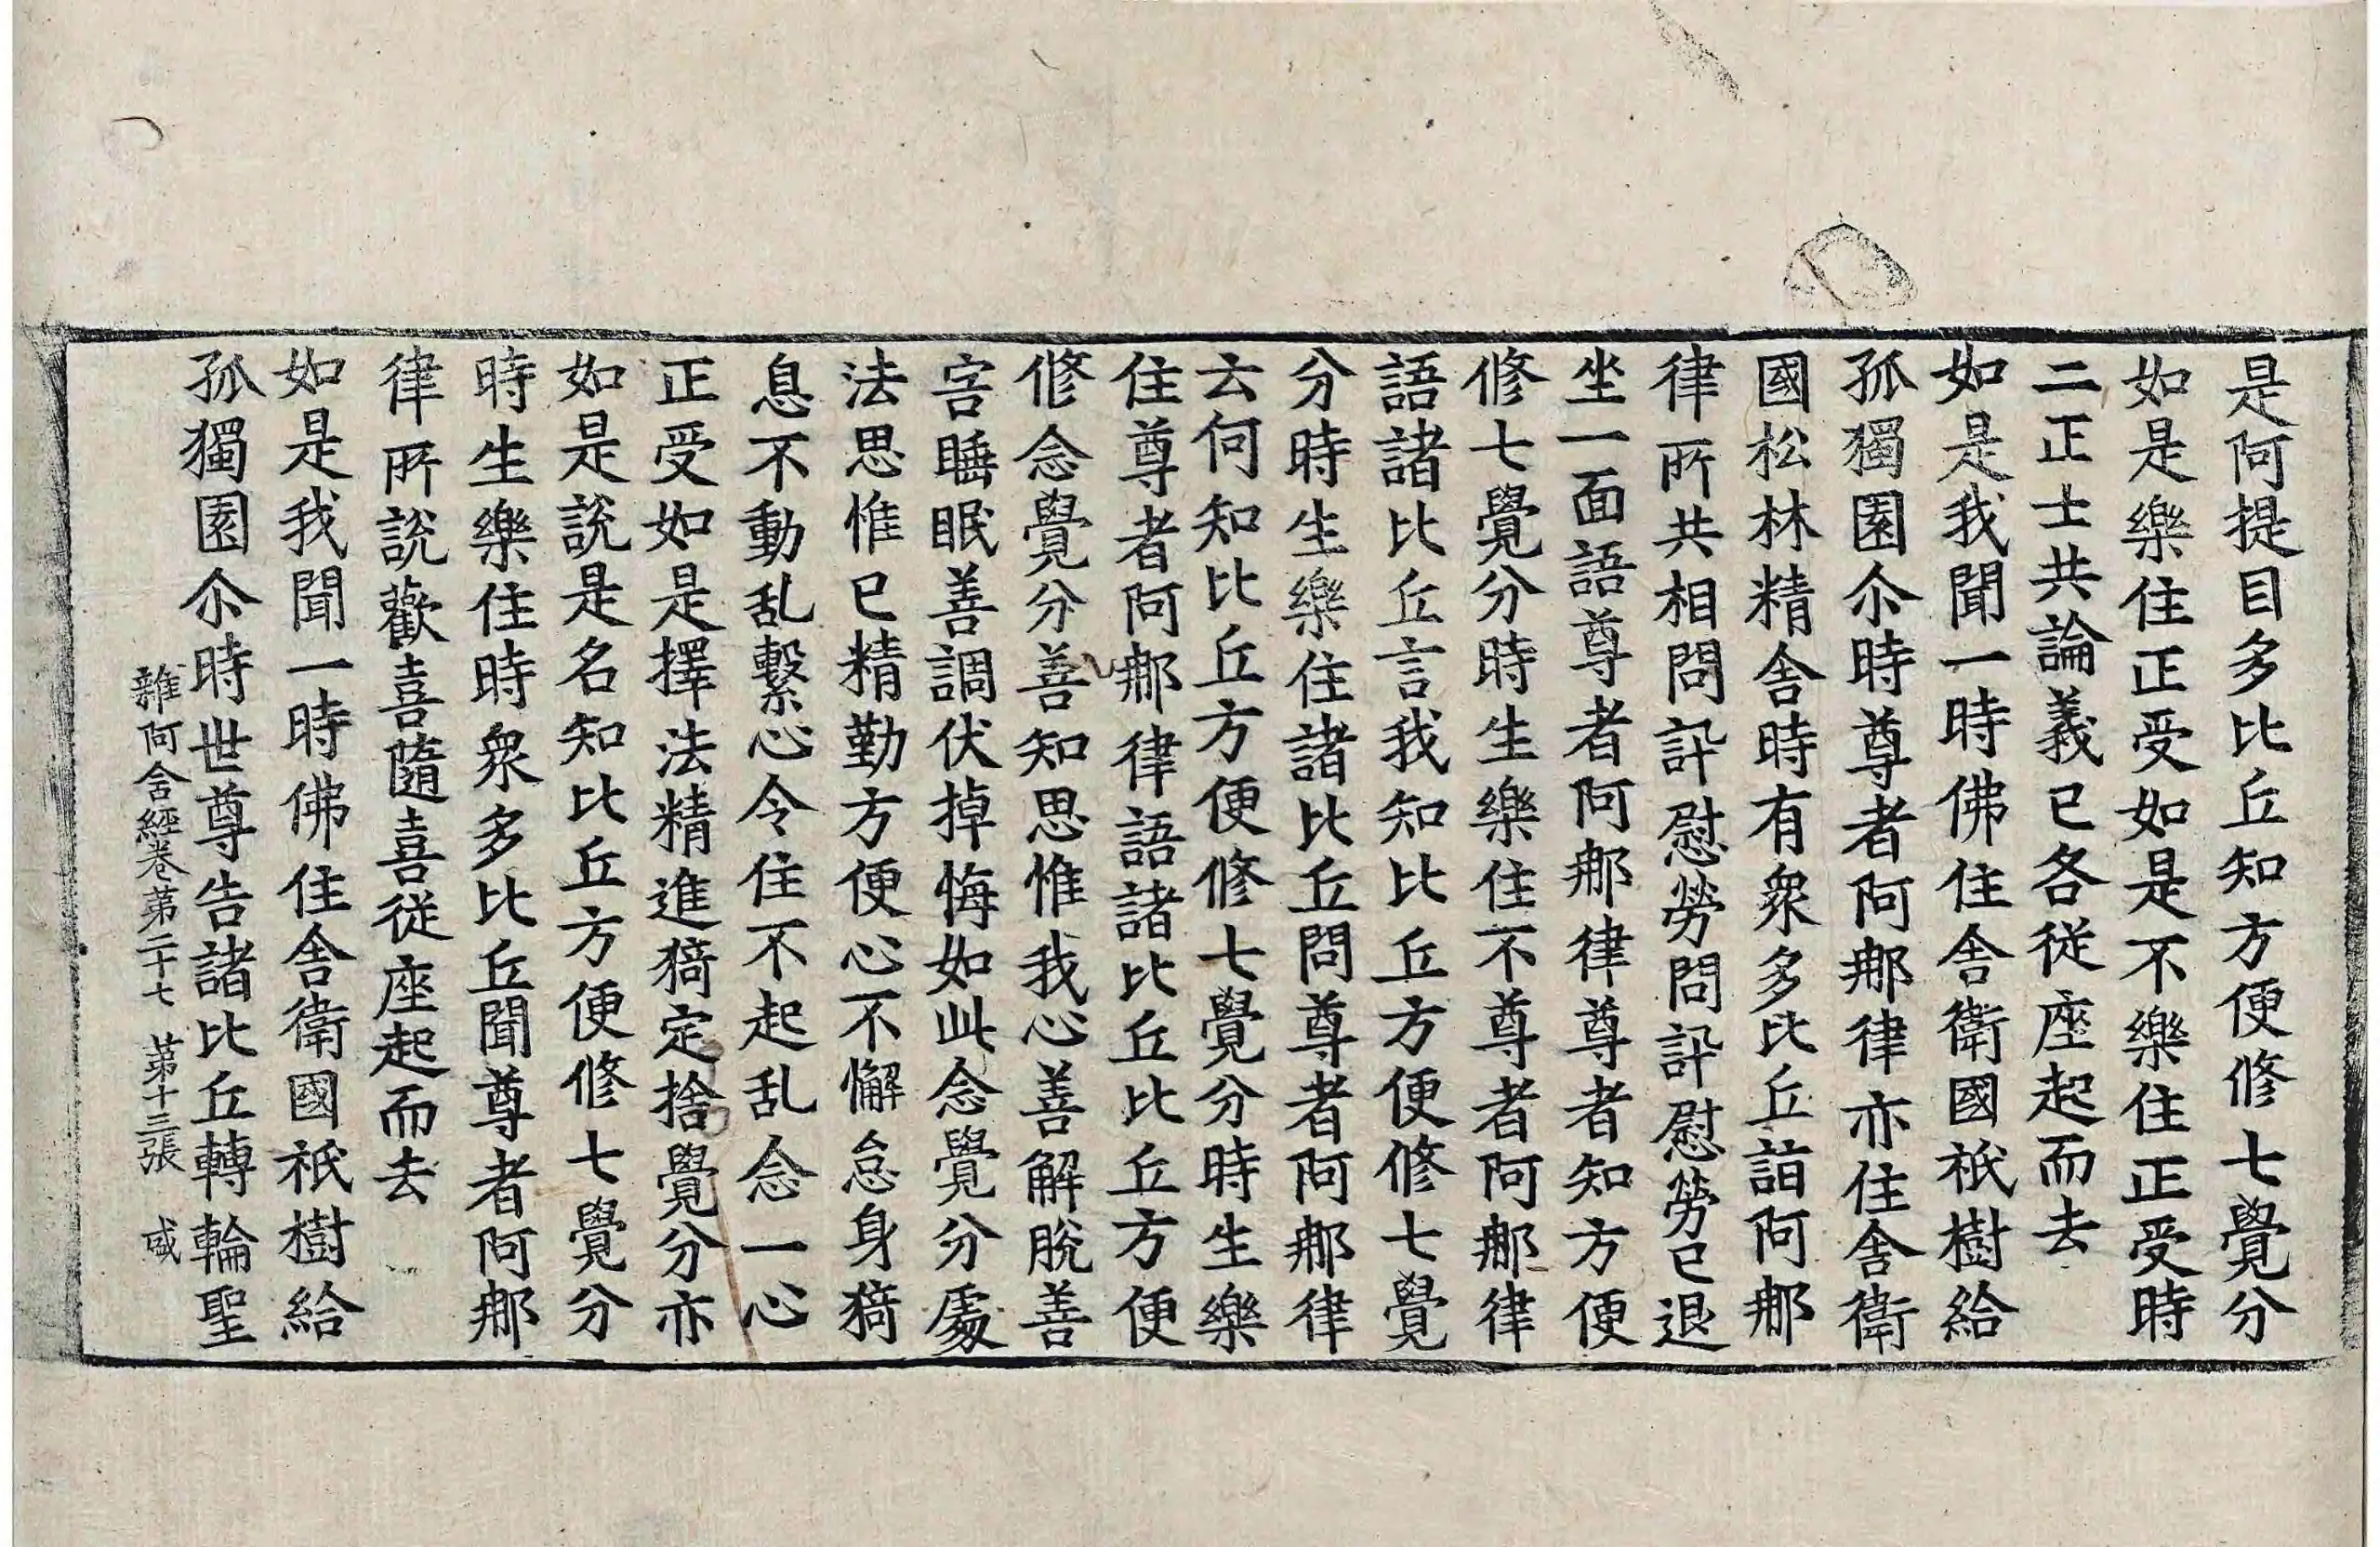 是阿提目多比丘知方便修七覺分
如是樂住正受如是不樂住正受時
二正士共論義已各從座起而去
如是我聞一時佛住舍衛國祇樹給
孤獨園尒時尊者阿那律亦住舍衛
國松林精舍時有衆多比丘詣阿那
律所共相問訊慰勞問訊慰勞已退
坐一面語尊者阿那律尊者知方便
修七覺分時生樂住不尊者阿那律
語諸比丘言我知比丘方便修七覺
分時生樂住諸比丘問尊者阿那律
云何知比丘方便修七覺分時生樂
住尊者阿那律語諸比丘比丘方便
修念覺分善知思惟我心善解脫善
害睡眠善調伏掉悔如此念覺分處
法思惟已精勤方便心不懈怠身猗
息不動乱繫心令住不起乱念一心
正受如是擇法精進猗定捨覺分亦
如是說是名知比丘方便修七覺分
時生樂住時衆多比丘聞尊者阿那
律所說歡喜隨喜從座起而去
如是我聞一時佛住舍衛國祇樹給
孤獨園尒時世尊告諸比丘轉輪聖
雜阿含經卷第二十七 第十三張 盛